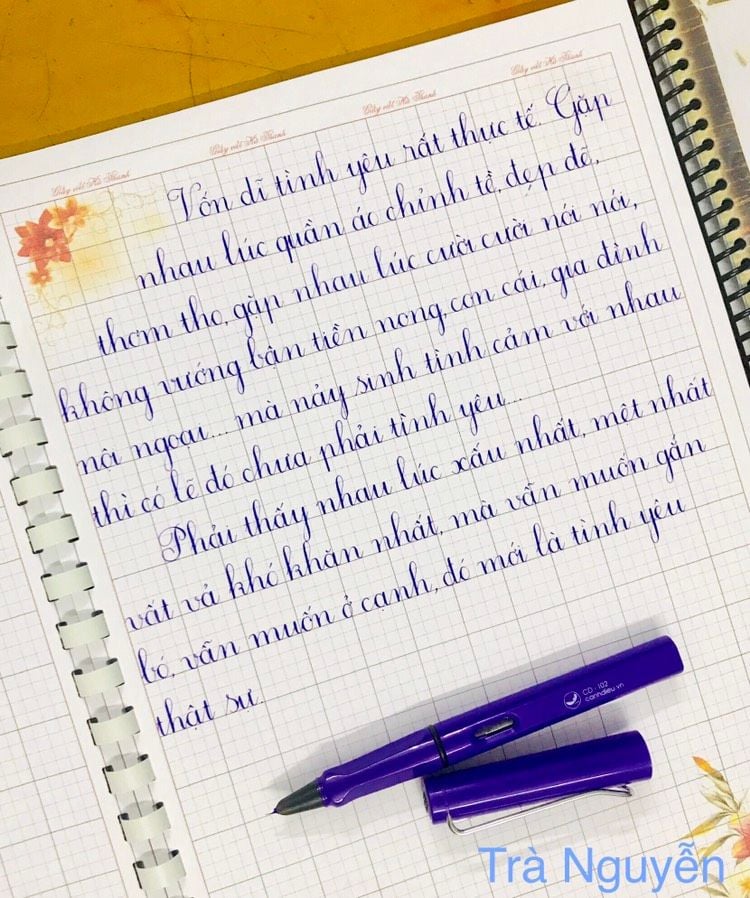 Giấy viết Hà Thanh
Giấy viết Hà Thanh
Giấy viết Hà Thanh
Giấy viết Hà Thanh
Vốn dĩ tình yêu rất thực tế. Gặp
nhau lúc quần áo chỉnh tề, đẹp đẽ,
thơm tho, gặp nhau lúc cười cười nói nói,
không vướng bận tiền nong, con cái, gia đình
nội ngoại... mà nảy sinh tình cảm với nhau
thì có lẽ đó chưa phải tình yêu...
Phải thấy nhau lúc xấu nhất, mệt nhất
vất vả khó khăn nhất, mà vẫn muốn gắn
bó, vẫn muốn ở cạnh, đó mới là tình yêu
thật sự.
CD - 102
canhdieu.vn
Trà Nguyễn